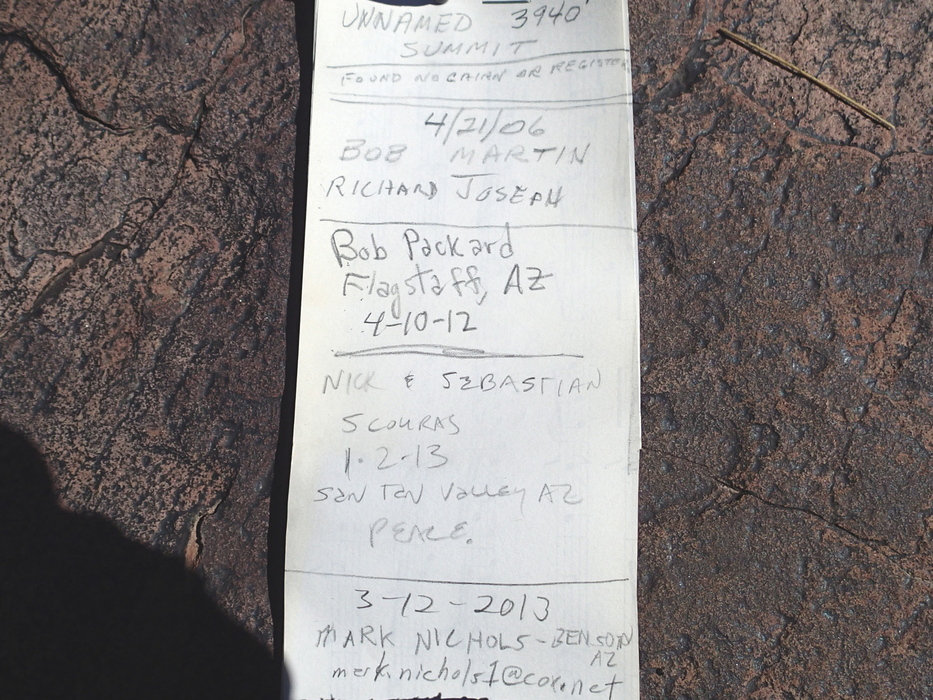 UNNAMED 3940'
SUMMIT
FOUND NO CAIRN OR REGISTER
4/21/06
BOB MARTIN
RICHARD JOSEPH
Bob Packard
Flagstaff, AZ
4-10-12
NICK & SEBASTIAN
SCOURAS
1-2-13
San Tan Valley AZ
PEACE.
3-12-2013
MARK NICHOLS - BENSON
AZ
mark.nichols1@cox.net